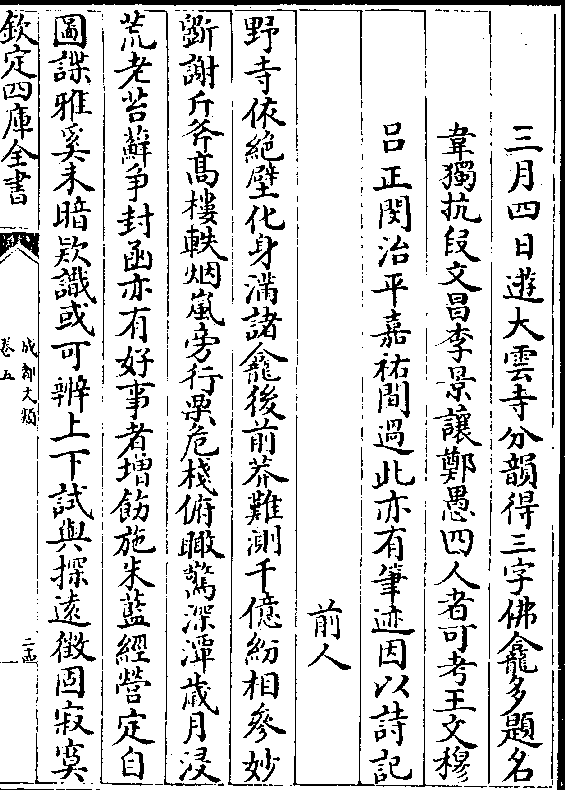 三月四日遊大雲寺分韻得三字佛龕多題名
韋獨抗段文昌李景讓鄭愚四人者可考王文穆
呂正閔治平嘉祐間過此亦有筆迹因以詩記
前人
野寺依絶壁化身滿諸龕後前莽難測千億紛相參妙
斵謝斤斧髙樓軼烟嵐旁行栗危棧俯瞰驚深潭歲月浸
荒老苔蘚爭封函亦有好事者増飭施朱藍經營定自
圖諜雅奚未暗欵識或可辨上下試與探遠徴固寂寞
欽定四庫全書
成都文類
卷五